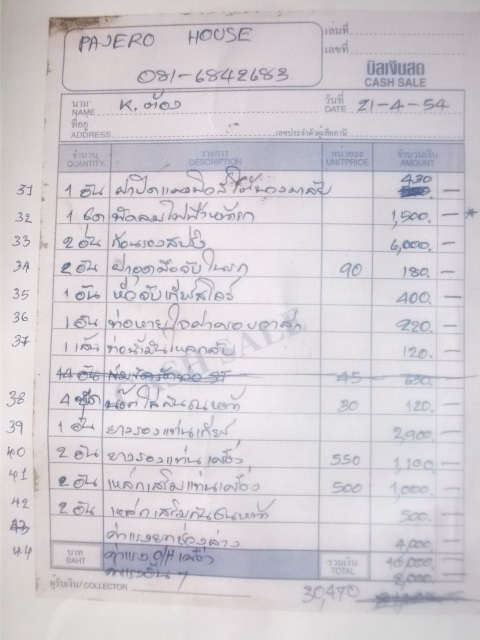 PAJERO HOUSE
081-6842683
เล่มที่
เลขที่
บิลเงินสด
CASH SALE
นาม NAME K. ต้อง วันที่ DATE 21-4-54
ที่อยู่ ADDRESS เลขประจำตัวผู้เสียภาษี
จำนวน QUANTITY รายการ DESCRIPTION หน่วยละ UNITPRICE จำนวนเงิน AMOUNT
31 1 อัน 430 —
32 1 ชุด พัดลมไฟฟ้าหน้ารถ 1,500. — *
33 2 อัน ก้นรองสปริง 6,000. —
34 2 อัน ในรถ 90 180. —
35 1 อัน หัวจับเกียร์สโลว์ 400. —
36 1 อัน ท่อหายใจฝาครอบวาล์ว 220. —
37 1 เส้น ท่อน้ำมัน 120. —
14 อัน 45 630. —
38 4 ชุด น๊อตใส่ 30 120. —
39 1 อัน ยางรองแท่นเกียร์ 2,900. —
40 2 อัน ยางรองแท่นเครื่อง 550 1,100 —
41 2 อัน เหล็กเสริมแท่นเครื่อง 500 1,000. —
42 2 อัน เหล็กเสริมกันชนหน้า 500. —
43 ค่าแรงยกช่วงล่าง 4,000 —
44 ค่าแรง O/H เครื่อง
ค่าแรงอื่น ๆ 8,000 —
บาท BAHT รวมเงิน TOTAL
ผู้รับเงิน/COLLECTOR 30,470
CASH SALE